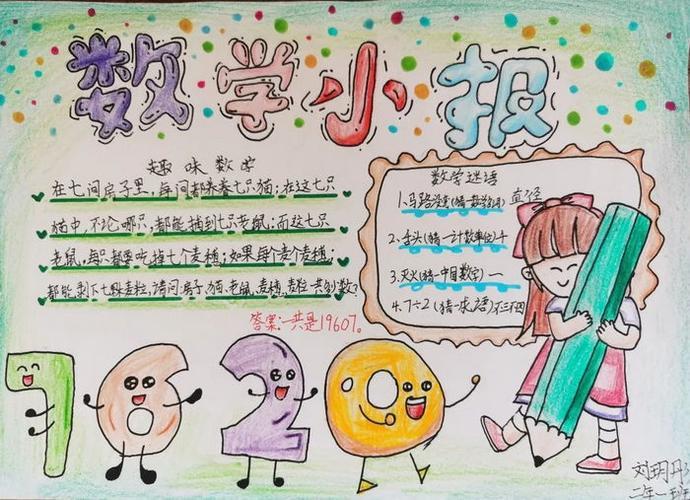 数学小报
趣味数学
在七间房子里，每间都养着七只猫；在这七只
猫中，不论哪只，都能捕到七只老鼠；而这七只
老鼠，每只都要吃掉七个麦穗；如果每个麦穗
都能剥下七颗麦粒，请问：房子、猫、老鼠、麦穗、麦粒一共到数？
答案：一共是19607。
数学谜语
1.马路没弯(猜一数学名词) 直径
2.舌头(猜一计数单位)千
3.灭火(猜一中国数字)一
4.7÷2(猜一成语)不三不四
7 6 2 9
刘玥丹
二年一班